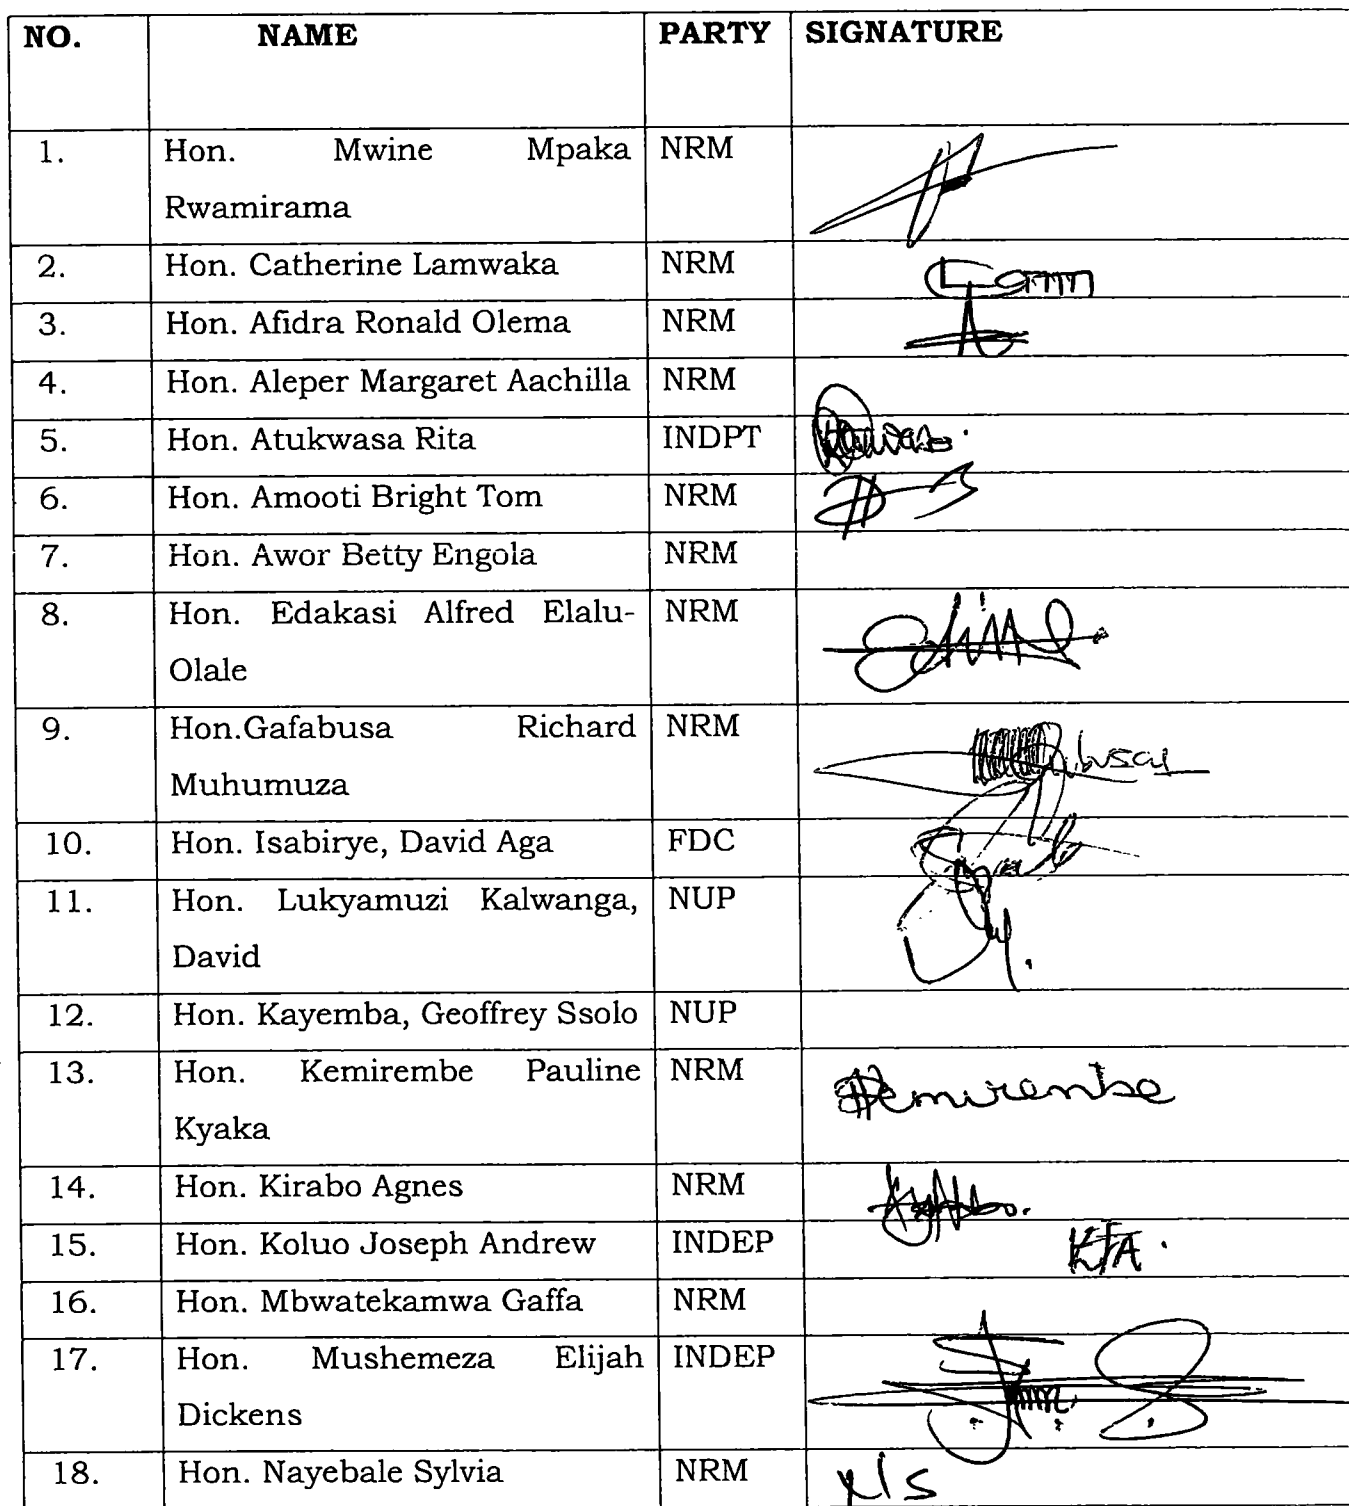 NO. NAME PARTY SIGNATURE
1. Hon. Mwine Mpaka NRM
Rwamirama
2. Hon. Catherine Lamwaka NRM
3. Hon. Afidra Ronald Olema NRM
4. Hon. Aleper Margaret Aachilla NRM
5. Hon. Atukwasa Rita INDPT
6. Hon. Amooti Bright Tom NRM
7. Hon. Awor Betty Engola NRM
8. Hon. Edakasi Alfred Elalu- NRM
Olale
9. Hon.Gafabusa Richard NRM
Muhumuza
10. Hon. Isabirye, David Aga FDC
11. Hon. Lukyamuzi Kalwanga, NUP
David
12. Hon. Kayemba, Geoffrey Ssolo NUP
13. Hon. Kemirembe Pauline NRM Kemirembe
Kyaka
14. Hon. Kirabo Agnes NRM
15. Hon. Koluo Joseph Andrew INDEP KJA.
16. Hon. Mbwatekamwa Gaffa NRM
17. Hon. Mushemeza Elijah INDEP
Dickens
18. Hon. Nayebale Sylvia NRM NS